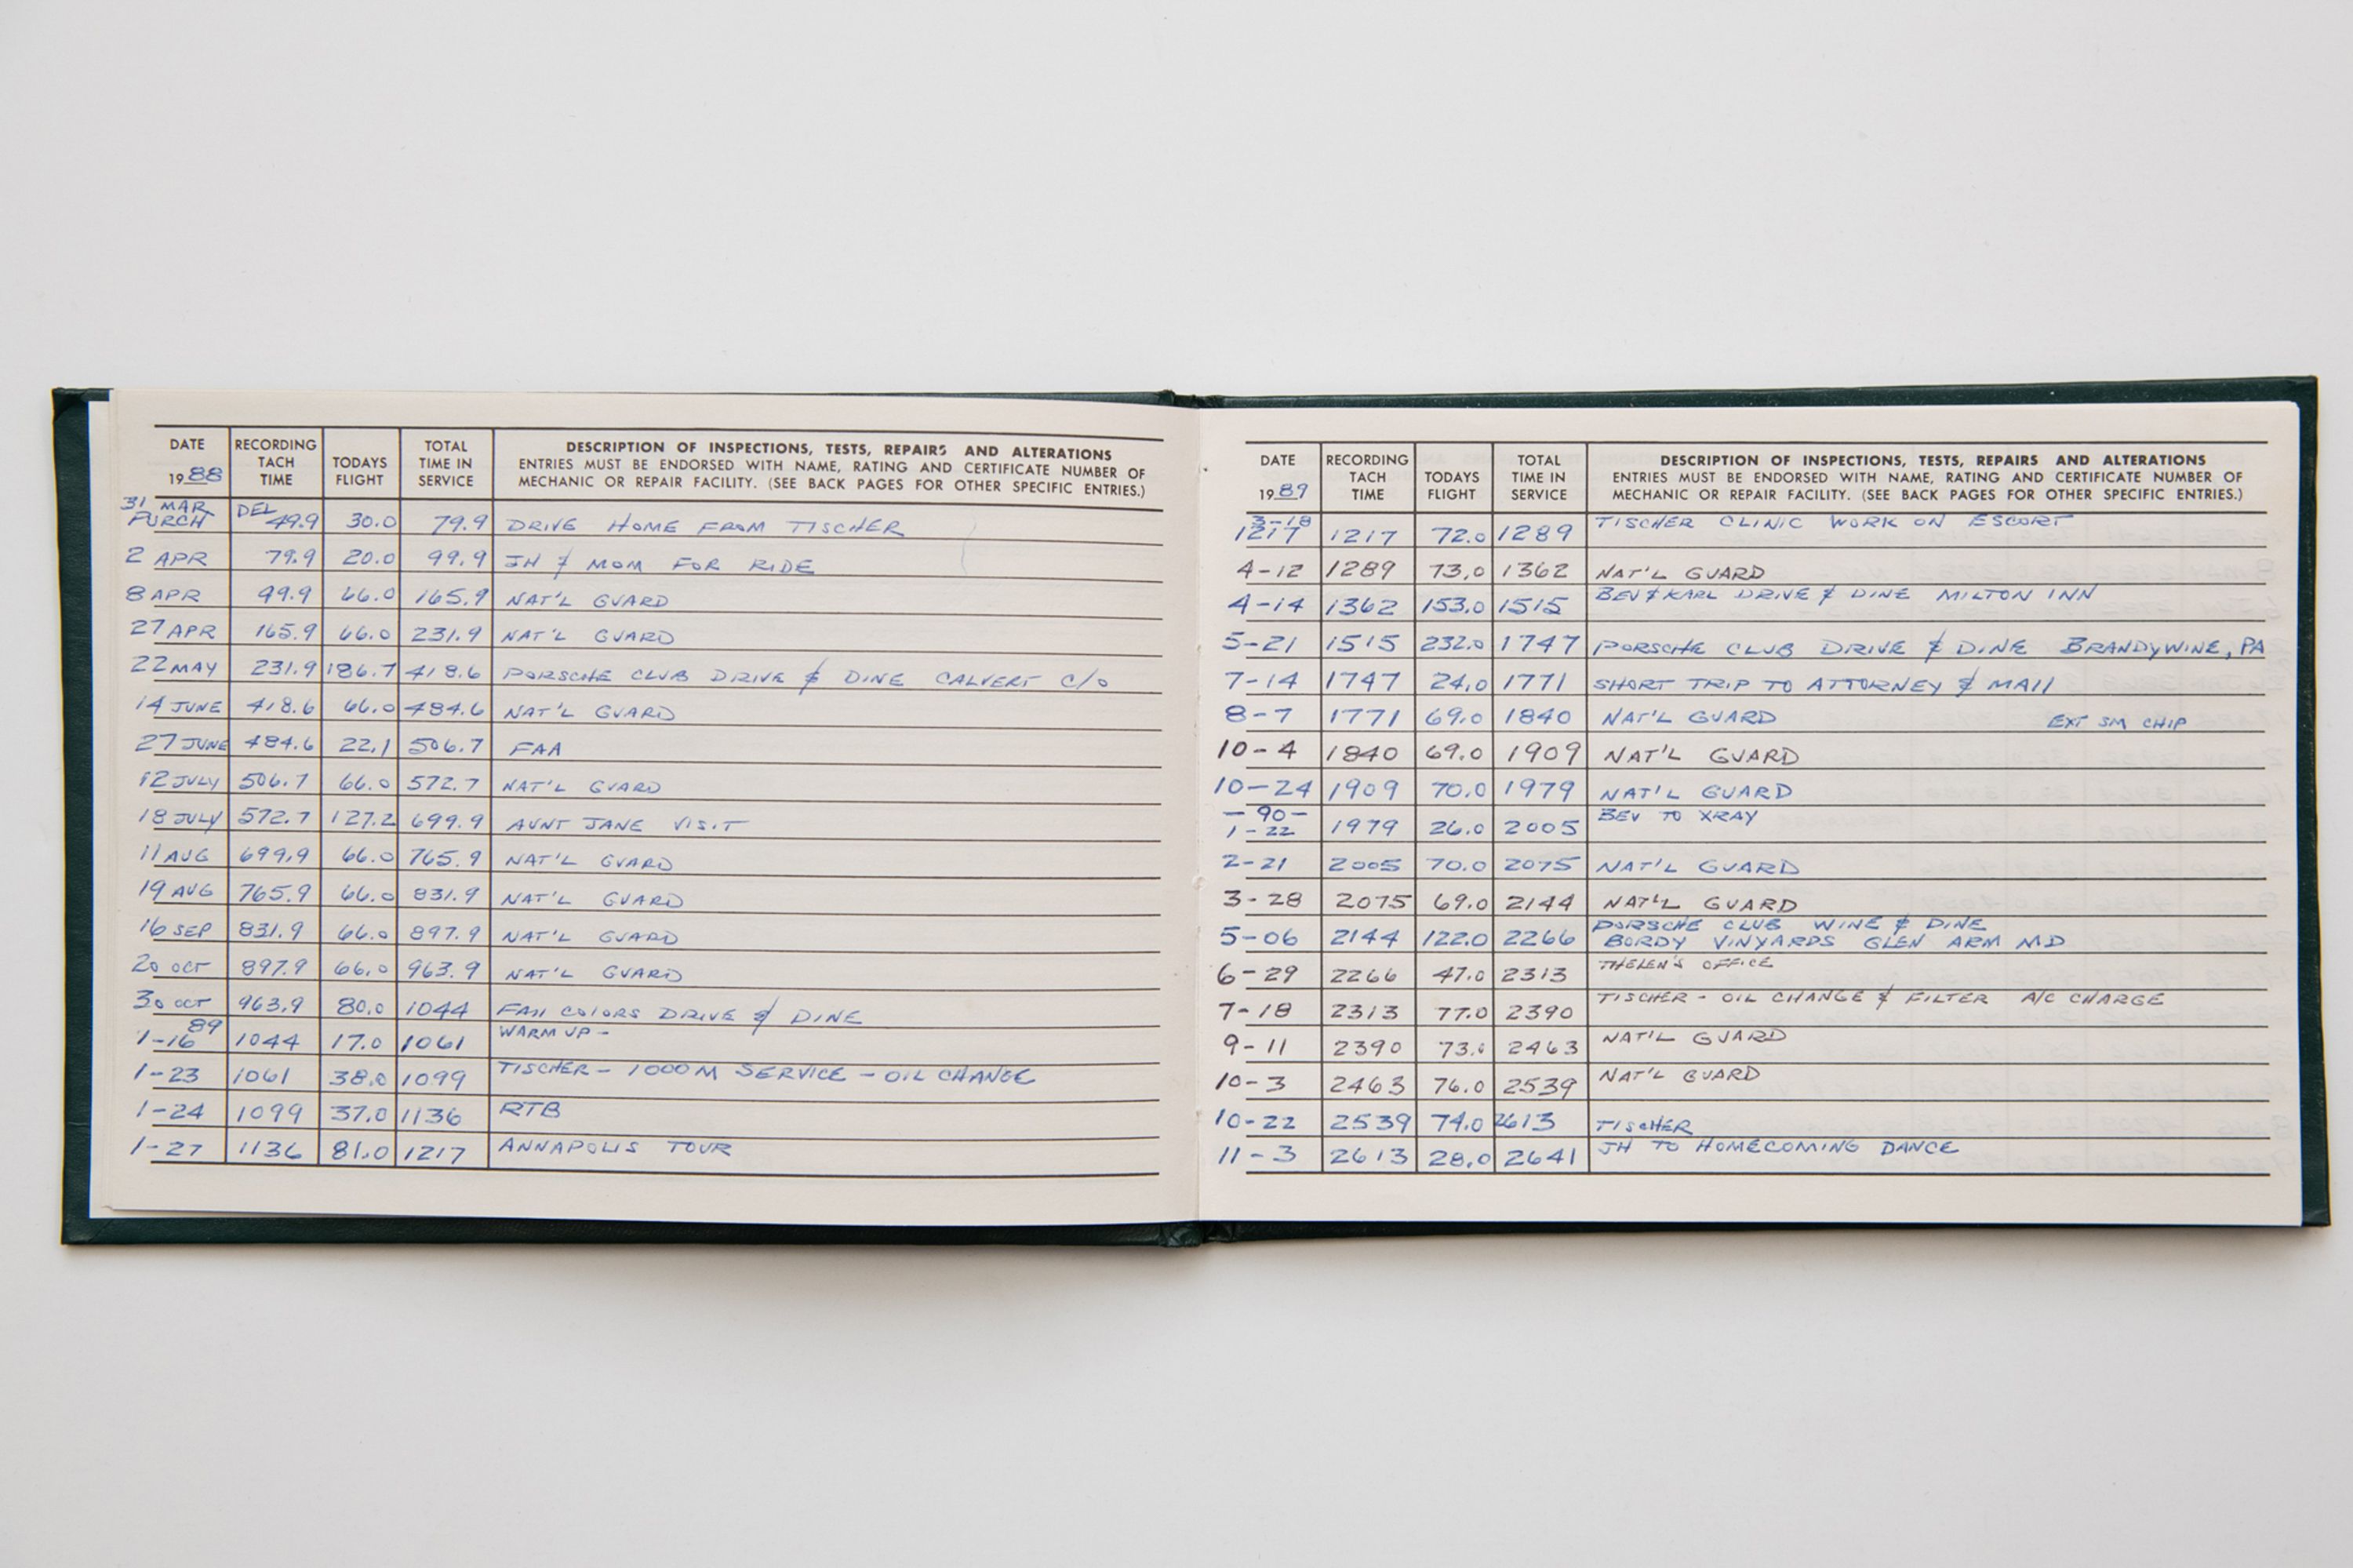 DATE RECORDING TACH TIME TODAYS FLIGHT TOTAL TIME IN SERVICE DESCRIPTION OF INSPECTIONS, TESTS, REPAIRS AND ALTERATIONS
1988 ENTRIES MUST BE ENDORSED WITH NAME, RATING AND CERTIFICATE NUMBER OF
MECHANIC OR REPAIR FACILITY. (SEE BACK PAGES FOR OTHER SPECIFIC ENTRIES.)
31 MAR PURCH DEL 49.9 30.0 79.9 DRIVE HOME FROM TISCHER
2 APR 79.9 20.0 99.9 JH & MOM FOR RIDE
8 APR 99.9 66.0 165.9 NAT'L GUARD
27 APR 165.9 66.0 231.9 NAT'L GUARD
22 MAY 231.9 186.7 418.6 PORSCHE CLUB DRIVE & DINE CALVERT C/O
14 JUNE 418.6 66.0 484.6 NAT'L GUARD
27 JUNE 484.6 22.1 506.7 FAA
12 JULY 506.7 66.0 572.7 NAT'L GUARD
18 JULY 572.7 127.2 699.9 AUNT JANE VISIT
11 AUG 699.9 66.0 765.9 NAT'L GUARD
19 AUG 765.9 66.0 831.9 NAT'L GUARD
16 SEP 831.9 66.0 897.9 NAT'L GUARD
20 OCT 897.9 66.0 963.9 NAT'L GUARD
30 OCT 963.9 80.0 1044 FALL COLORS DRIVE & DINE
89 1-16 1044 17.0 1061 WARM UP -
1-23 1061 38.0 1099 TISCHER - 1000 M SERVICE - OIL CHANGE
1-24 1099 37.0 1136 RTB
1-27 1136 81.0 1217 ANNAPOLIS TOUR
DATE RECORDING TACH TIME TODAYS FLIGHT TOTAL TIME IN SERVICE DESCRIPTION OF INSPECTIONS, TESTS, REPAIRS AND ALTERATIONS
1989 ENTRIES MUST BE ENDORSED WITH NAME, RATING AND CERTIFICATE NUMBER OF
MECHANIC OR REPAIR FACILITY. (SEE BACK PAGES FOR OTHER SPECIFIC ENTRIES.)
3-18 1217 1217 72.0 1289 TISCHER CLINIC WORK ON ESCORT
4-12 1289 73.0 1362 NAT'L GUARD
4-14 1362 153.0 1515 BEV & KARL DRIVE & DINE MILTON INN
5-21 1515 232.0 1747 PORSCHE CLUB DRIVE & DINE BRANDYWINE, PA
7-14 1747 24.0 1771 SHORT TRIP TO ATTORNEY & MALL
8-7 1771 69.0 1840 NAT'L GUARD EXT SM CHIP
10-4 1840 69.0 1909 NAT'L GUARD
10-24 1909 70.0 1979 NAT'L GUARD
- 90 - 1-22 1979 26.0 2005 BEV TO XRAY
2-21 2005 70.0 2075 NAT'L GUARD
3-28 2075 69.0 2144 NAT'L GUARD
5-06 2144 122.0 2266 PORSCHE CLUB WINE & DINE
BORDY VINYARDS GLEN ARM MD
6-29 2266 47.0 2313 THELEN'S OFFICE
7-18 2313 77.0 2390 TISCHER - OIL CHANGE & FILTER A/C CHARGE
9-11 2390 73.0 2463 NAT'L GUARD
10-3 2463 76.0 2539 NAT'L GUARD
10-22 2539 74.0 2613 TISCHER
11-3 2613 28.0 2641 JH TO HOMECOMING DANCE